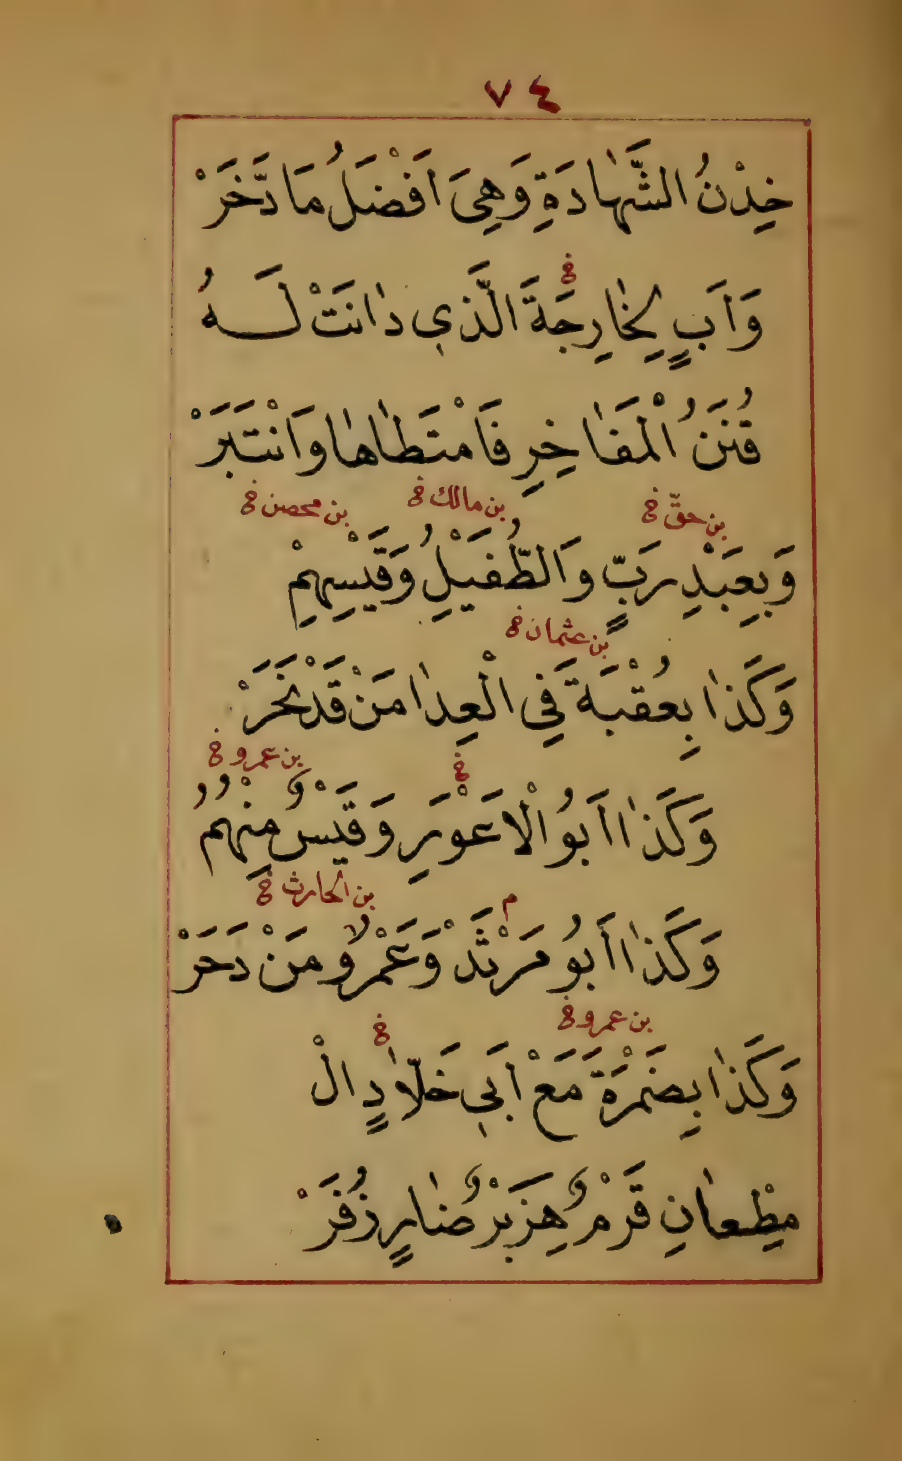 ٧٤
خِدْنُ الشَّهَادَةِ وَهِيَ اَفْضَلُ مَا دَّخَرْ
خ
وَاَبٍ لِخَارِجَةَ الَّذِي دَانَتْ لَهُ
قُنَنُ الْمَفَاخِرِ فَامْتَطَاهَا وَانْتَبَرْ
بن حقّ خ بن مالك خ بن محصن خ
وَبِعَبْدِ رَبٍّ وَالطُّفَيْلِ وَقَيْسِهِمْ
بن عثمان خ
وَكَذَا بِعُقْبَةَ فِي الْعِدَا مَنْ قَدْ نَحَرْ
خ بن عمرو خ
وَكَذَا اَبُو الْاَعْوَرِ وَقَيْسٌ مِنْهُمُ
م بن الحارث خ
وَكَذَا اَبُو مَرْثَدْ وَعَمْرٌو مَنْ دَحَرْ
بن عمرو خ خ
وَكَذَا بِضَمْرَةَ مَعْ اَبِي خَلَّادٍ الْ
مِطْعَانِ قَرْمٌ هِزَبْرٌ ضَارٍ زُفَرْ